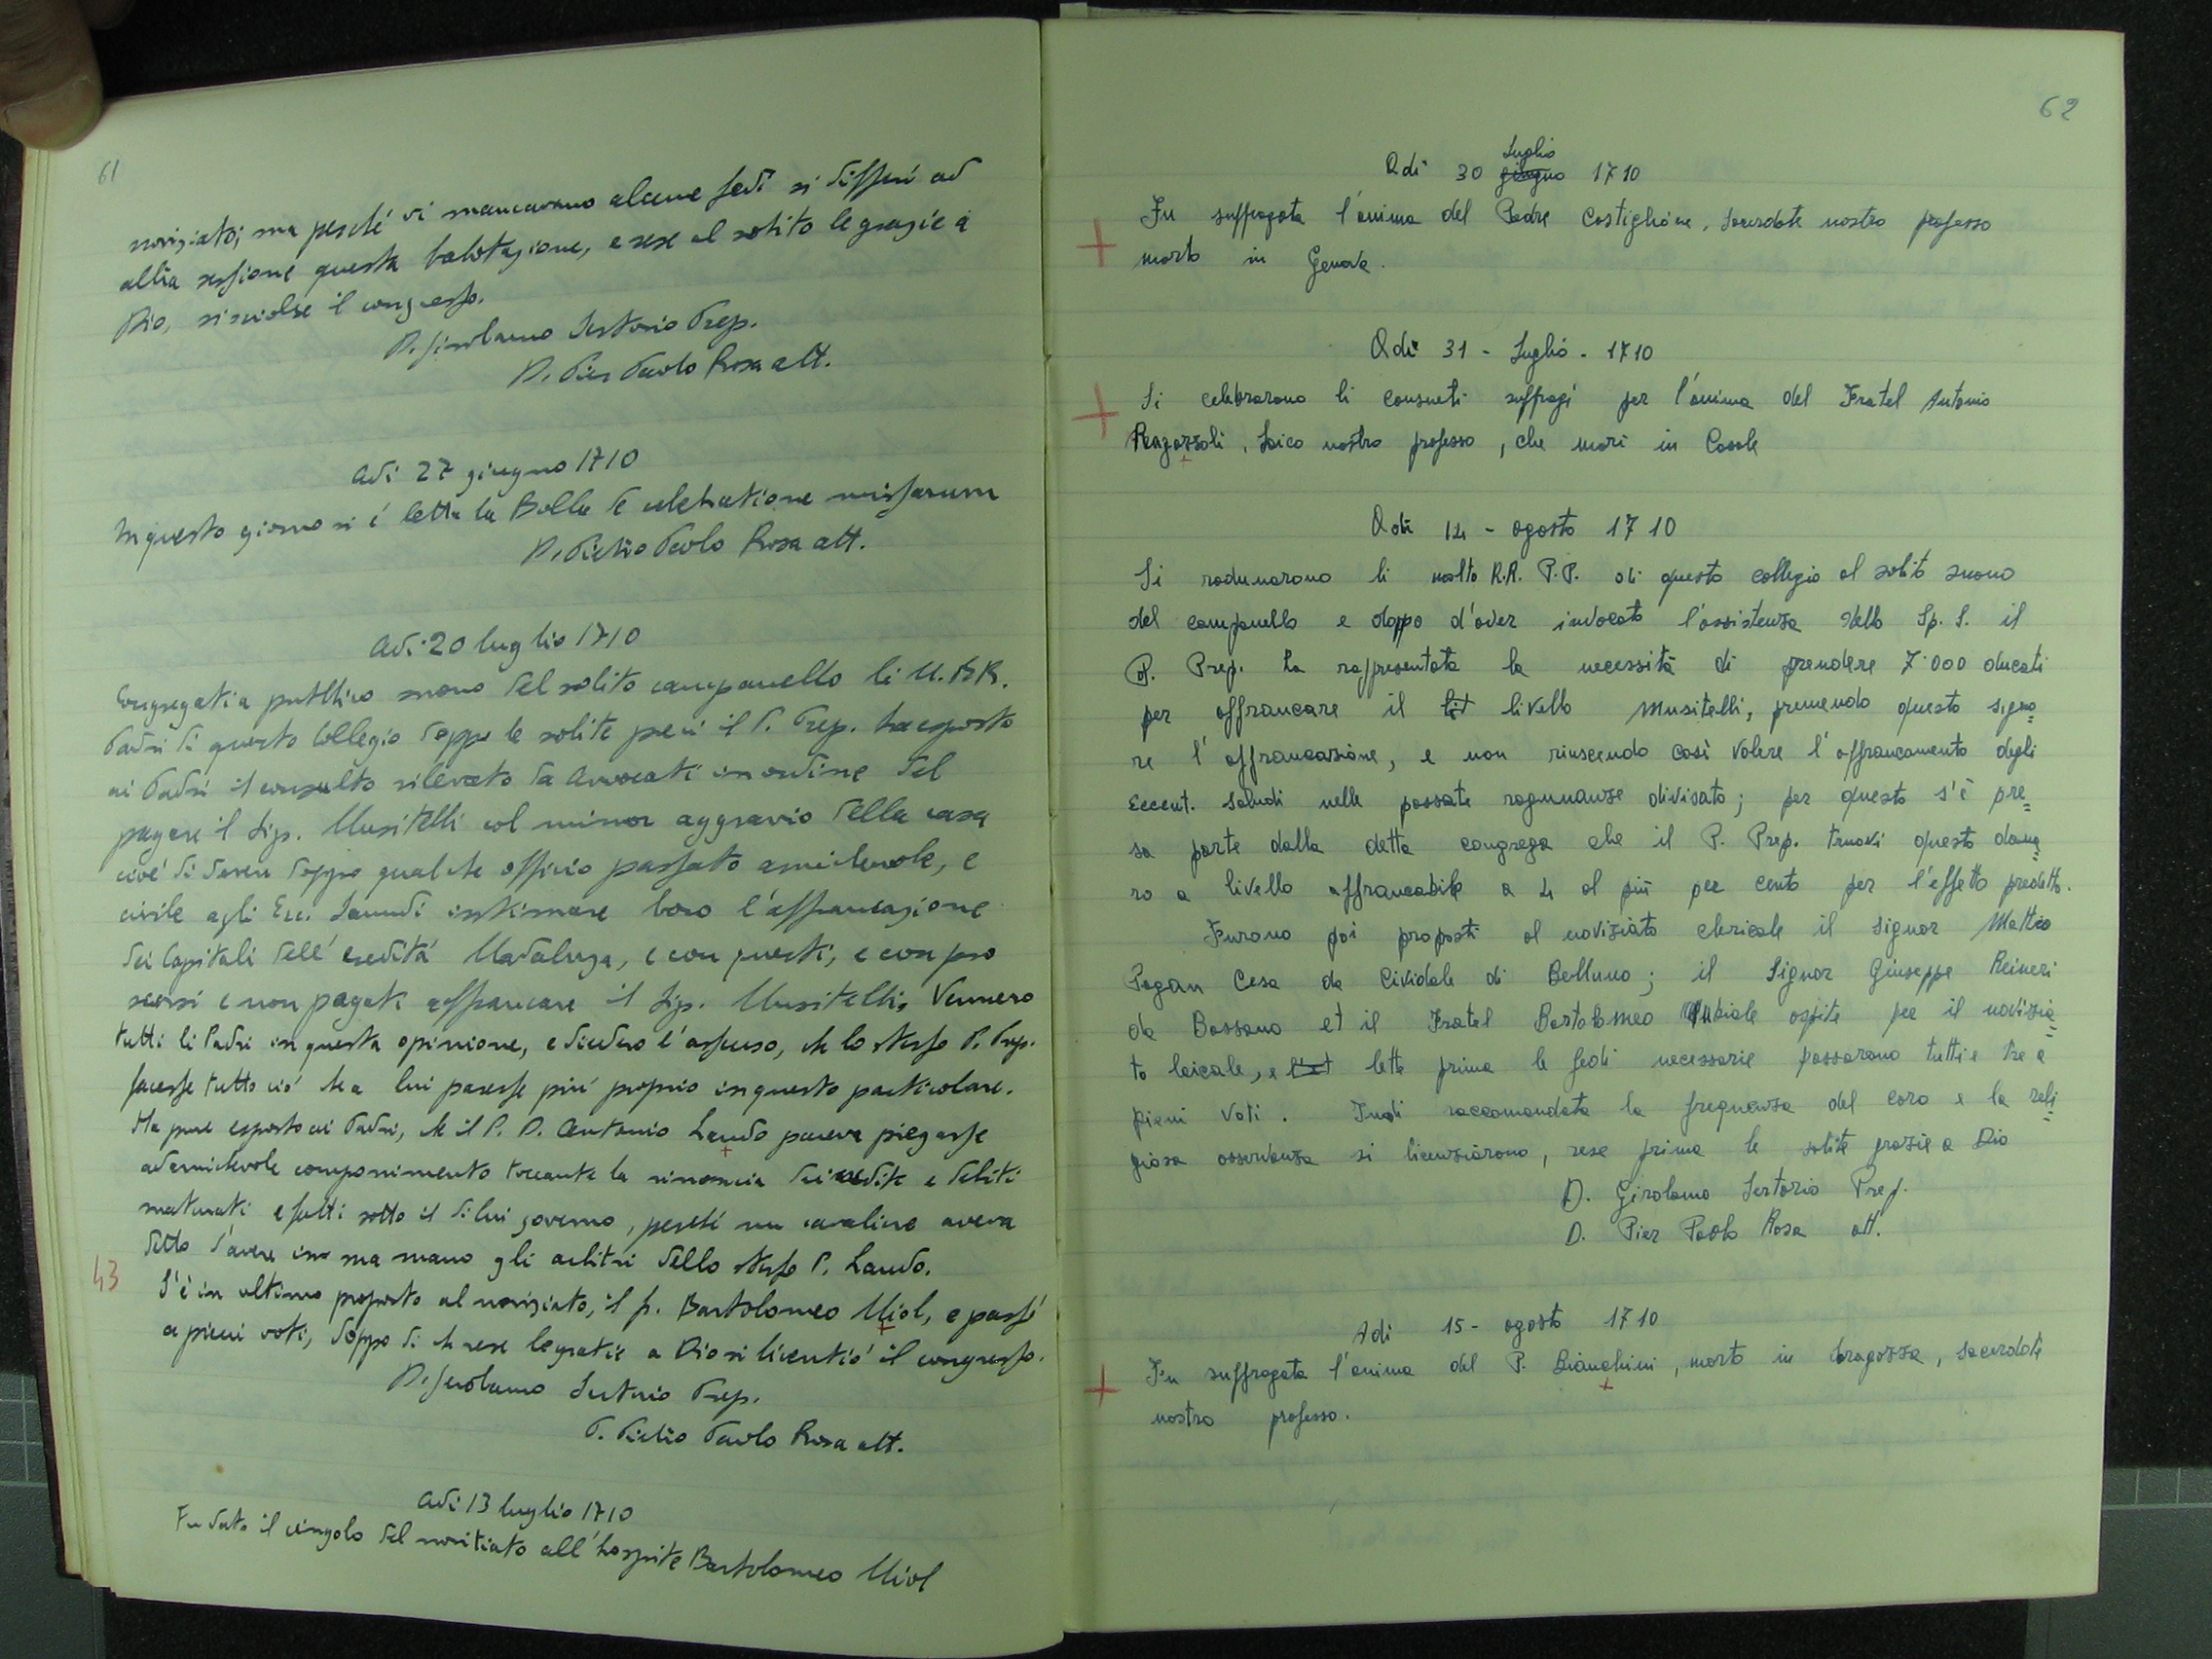 61
noviziato; ma perché vi mancavano alcune fedi si differì ad
altra sessione questa balotazione, e rese al solito le grazie a
Dio, si sciolse il congresso.
D. Girolamo Sertorio Prep.
D. Pier Paolo Rosa att.
Adi 27 giugno 1710
In questo giorno si é letta la Bolla de celebratione missarum
D. Pietro Paolo Rosa att.
Adi 20 luglio 1710
Congregati a pubblico suono del solito campanello li M. RR.
Padri di questo Collegio doppo le solite preci il P. Prep. ha esposto
ai Padri il consulto rilevato da Avvocati in ordine del
pagare il Sig. Musitelli col minor aggravio della casa
cioé di dover doppo qualche officio passato amichevole, e
civile agli Ecc. Larundi intimare loro l'affrancazione
dei Capitali dell' eredità Madaluga, e con questi, e con pro
scorsi e non pagati affrancare il Sig. Musitelli, Vennero
tutti li Padri in questa opinione, e diedero l'assenso, che lo stesso P. Prep.
facesse tutto ció che a lui paresse piú proprio in questo particolare.
Ha pure esposto ai Padri, che il P. D. Antonio Lando pareva piegasse
ad amichevole componimento toccante la rinoncia dei crediti e debiti
maturati e fatti sotto il di lui governo, perché un cavaliere aveva
detto d'avere in sua mano gli arbitri dello stesso P. Lando.
43
S'é in ultimo proposto al noviziato, il f. Bartolomeo Miol, e passó
a pieni voti, doppo di che rese le gratie a Dio si licentió il congresso.
D. Girolamo Sertorio Prep.
D. Pietro Paolo Rosa att.
Adi 13 luglio 1710
Fu dato il cingolo del novitiato all' hospite Bartolomeo Miol
62
Luglio
Adi 30 giugno 1710
Fu suffragata l'anima del Padre Castiglione, sacerdote nostro professo
morto in Genova.
Adi 31 - Luglio - 1710
Si celebrarono li consueti suffragi per l'anima del Fratel Antonio
Ragazzoli, laico nostro professo, che morì in Casale
Adi 14 - agosto 1710
Si radunarono li molto R.R. P.P. di questo collegio al solito suono
del campanello e doppo d'aver invocato l'assistenza dello Sp. S. il
P. Prep. ha rapresentata la necessità di prendere 7.000 ducati
per affrancare il lit livello Musitelli, premendo questo signo=
re l'affrancazione, e non riuscendo così volere l'affrancamento degli
Eccent. Salndi nelle passate ragunanze divisato; per questo s'è pre=
sa parte dalla detta congrega che il P. Prep. truovi questo dana=
ro a livello affrancabile a 4 al più per cento per l'effetto predetto.
Furono poi proposti al noviziato clericale il signor Matteo
Pagan Cesa da Cividale di Belluno; il Signor Giuseppe Reineri
da Bassano et il Fratel Bartolomeo Rubiale ospite per il novizia=
to laicale, e let lette prima le fedi necessarie passarono tutti e tre a
pieni voti. Indi raccomandata la frequenza del coro e la reli=
giosa osservanza si licenziarono, rese prima le solite grazie a Dio
D. Girolamo Sertorio Prep.
D. Pier Paolo Rosa att.
Adi 15 - agosto 1710
Fu suffragata l'anima del P. Bianchini, morto in bragozza, sacerdote
nostro professo.